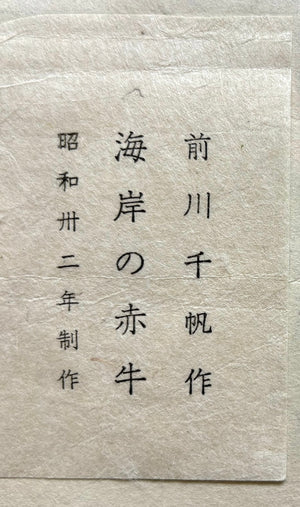 前川千帆作
海岸の赤牛
昭和卅二年制作